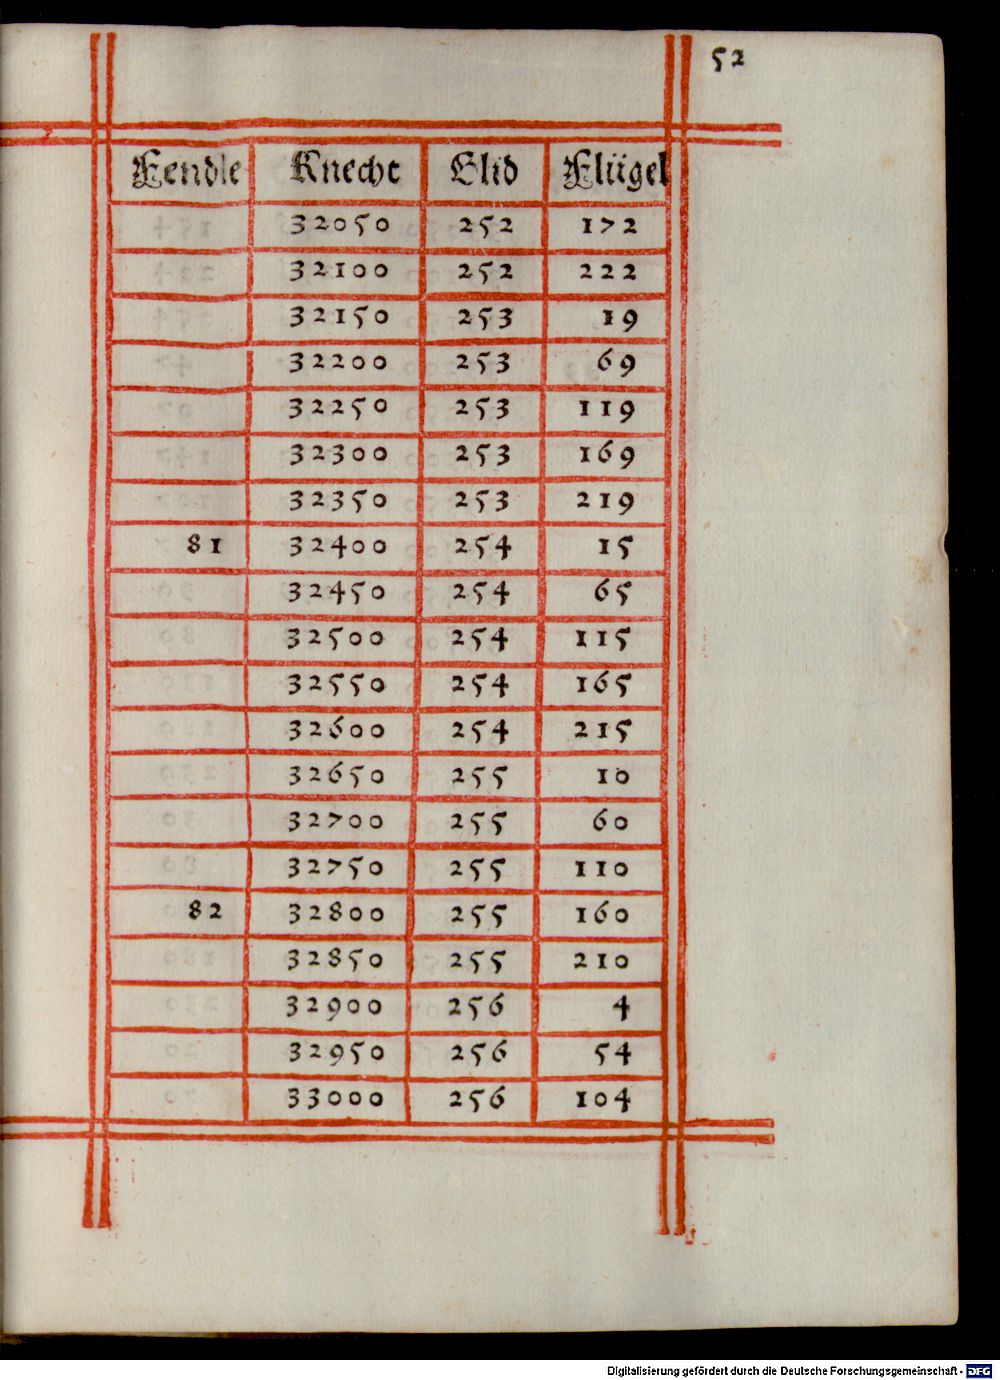 52
Fendle Knecht Glid Flügel
32050 252 172
32100 252 222
32150 253 19
32200 253 69
32250 253 119
32300 253 169
32350 253 219
81 32400 254 15
32450 254 65
32500 254 115
32550 254 165
32600 254 215
32650 255 10
32700 255 60
32750 255 110
82 32800 255 160
32850 255 210
32900 256 4
32950 256 54
33000 256 104
Digitalisierung gefördert durch die Deutsche Forschungsgemeinschaft - DFG